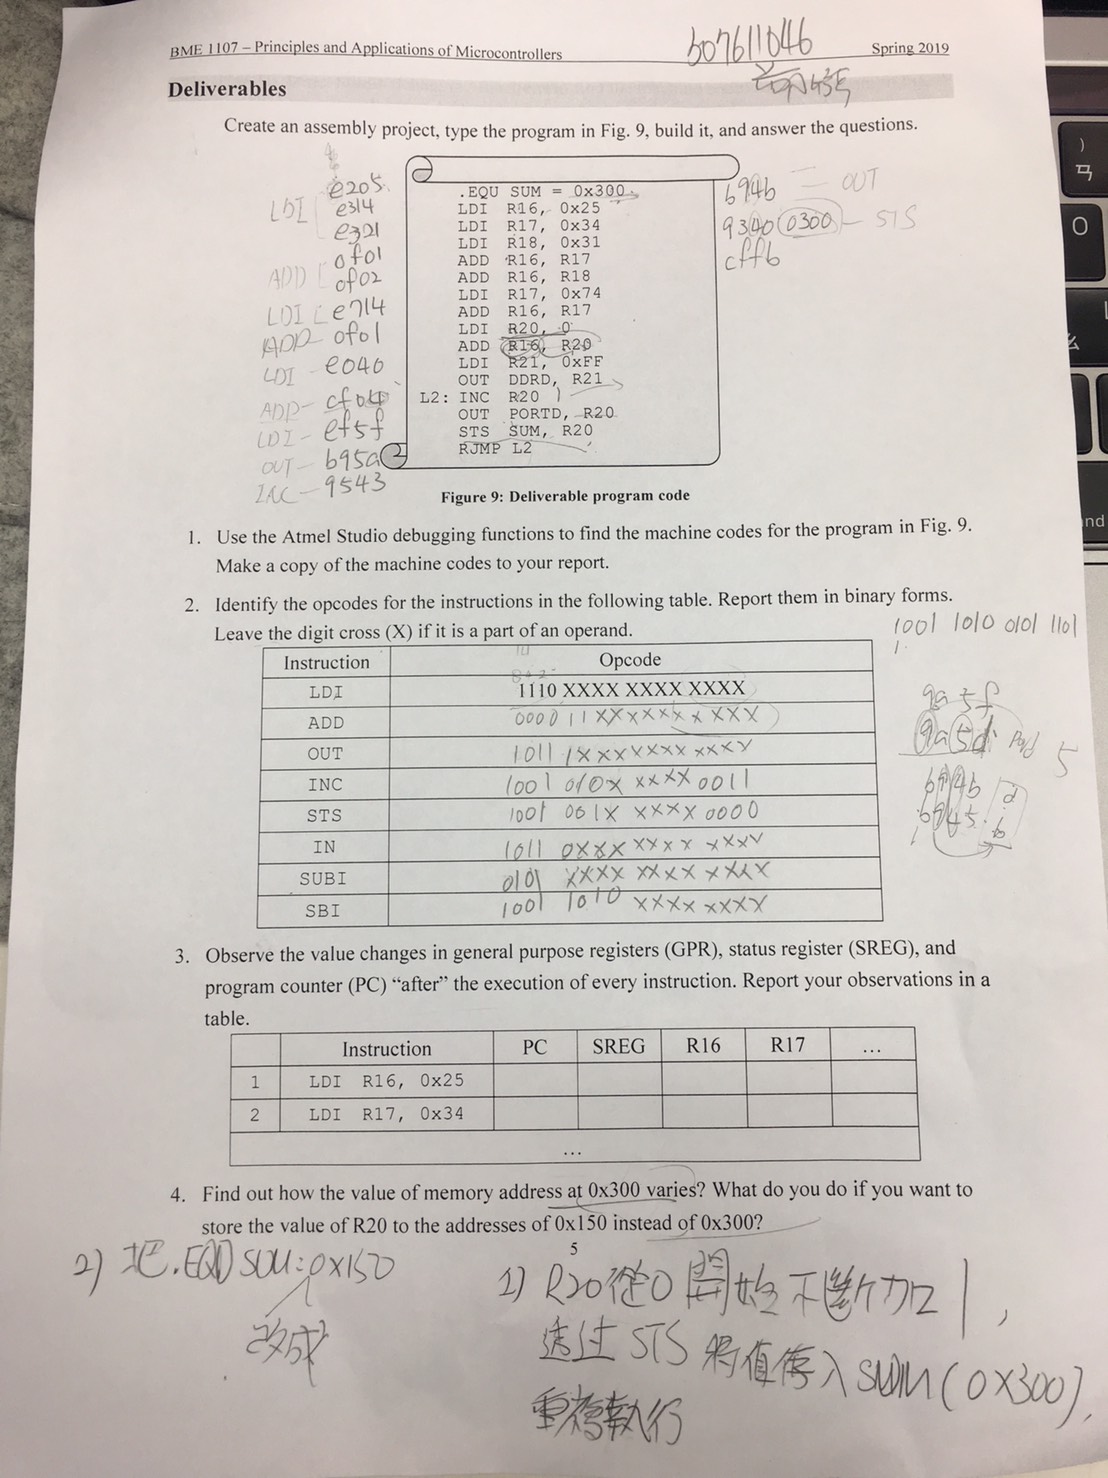 BME 1107 – Principles and Applications of Microcontrollers
b07611046
Spring 2019
Deliverables
Create an assembly project, type the program in Fig. 9, build it, and answer the questions.
LDI
e205
e314
e321
ADD
0f01
0f02
LDI e714
ADD 0f01
LDI e040
ADD - 0f04
LDI - ef5f
OUT - b95a
INC - 9543
.EQU SUM = 0x300
LDI R16, 0x25
LDI R17, 0x34
LDI R18, 0x31
ADD R16, R17
ADD R16, R18
LDI R17, 0x74
ADD R16, R17
LDI R20, 0
ADD R16, R20
LDI R21, 0xFF
OUT DDRD, R21
L2: INC R20
OUT PORTD, R20
STS SUM, R20
RJMP L2
b94b — OUT
9340 0300 — STS
cffb
Figure 9: Deliverable program code
1. Use the Atmel Studio debugging functions to find the machine codes for the program in Fig. 9.
Make a copy of the machine codes to your report.
2. Identify the opcodes for the instructions in the following table. Report them in binary forms.
Leave the digit cross (X) if it is a part of an operand.
1001 1010 0101 1101
Instruction Opcode
LDI 1110 XXXX XXXX XXXX
ADD 0000 11XX XXXX XXXX
OUT 1011 1XXX XXXX XXXX
INC 1001 010X XXXX 0011
STS 1001 001X XXXX 0000
IN 1011 0XXX XXXX XXXX
SUBI 0101 XXXX XXXX XXXX
SBI 1001 1010 XXXX XXXX
9a5f
9a5d
5
b94b
b945
d
b
3. Observe the value changes in general purpose registers (GPR), status register (SREG), and
program counter (PC) “after” the execution of every instruction. Report your observations in a
table.
Instruction PC SREG R16 R17 ...
1 LDI R16, 0x25
2 LDI R17, 0x34
...
4. Find out how the value of memory address at 0x300 varies? What do you do if you want to
store the value of R20 to the addresses of 0x150 instead of 0x300?
5
2) 把.EQU SUM=0x150
改成
1) R20從0開始不斷加1,
透过STS將值存入SUM(0x300),
重複執行